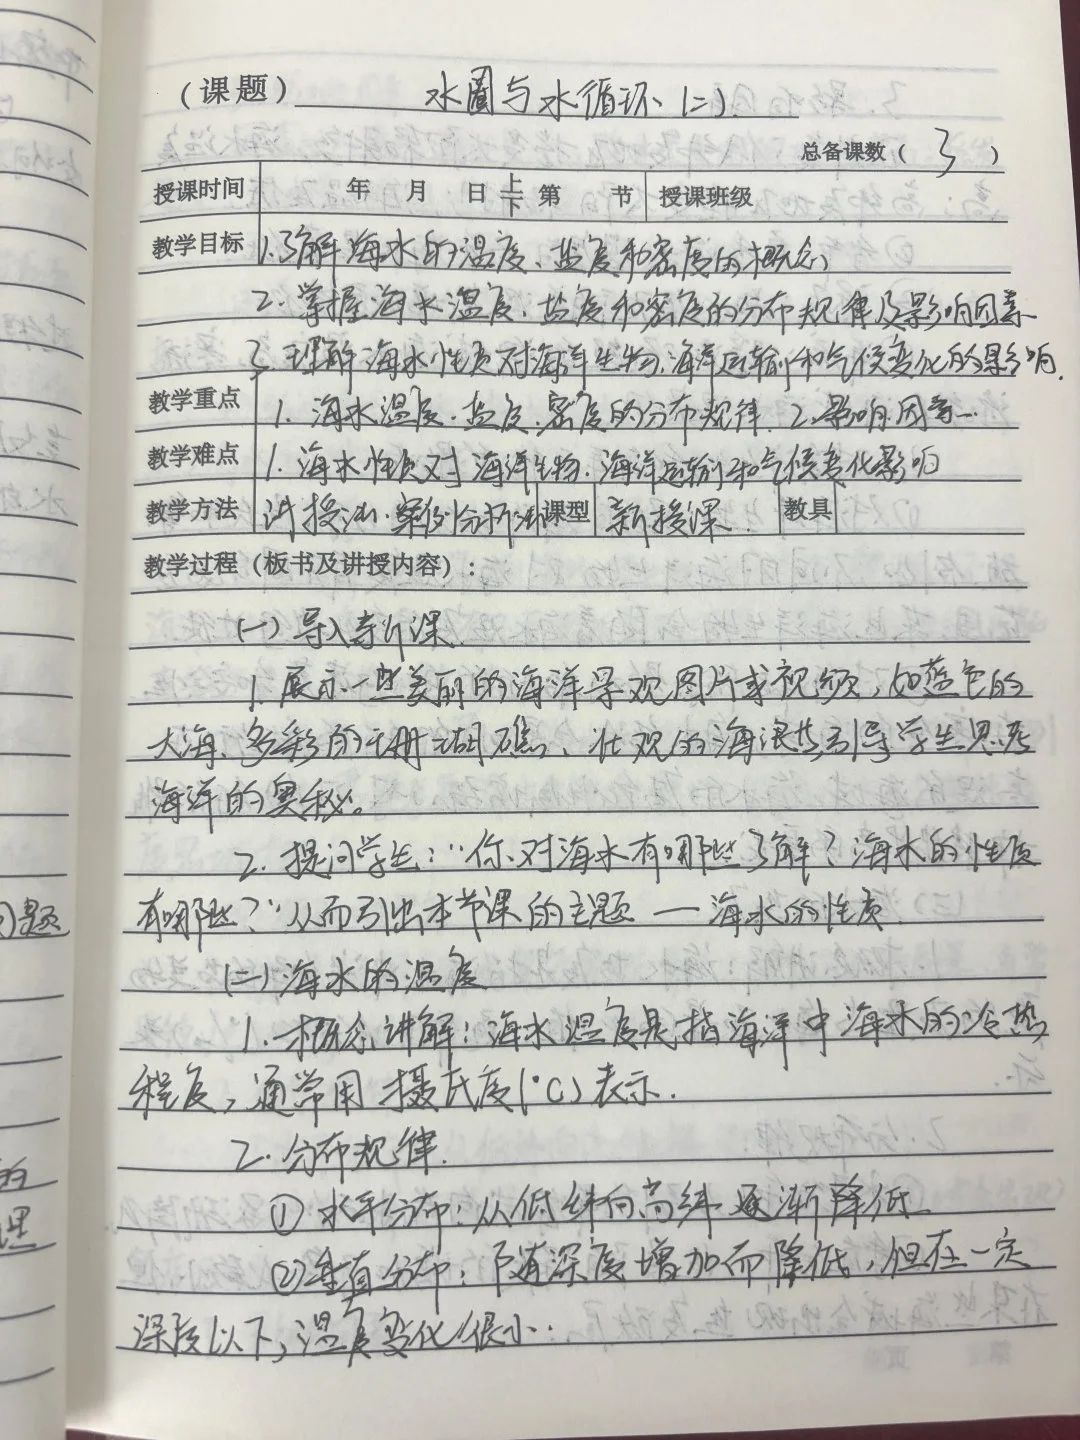 （课题） 水圈与水循环（二）
总备课数（ 3 ）
授课时间 年 月 日 上下 第 节 授课班级
教学目标 1.了解海水的温度、盐度和密度的概念
2.掌握海水温度、盐度和密度的分布规律及影响因素
3.理解海水性质对海洋生物、海洋运输和气候变化的影响.
教学重点 1.海水温度.盐度.密度的分布规律 2.影响因素
教学难点 1.海水性质对海洋生物.海洋运输和气候变化影响
教学方法 讲授法.案例分析法 课型 新授课 教具
教学过程（板书及讲授内容）：
（一）导入新课
1.展示一些美丽的海洋景观图片或视频，如蓝色的
大海、多彩的珊瑚礁、壮观的海浪等引导学生思考
海洋的奥秘。
2.提问学生：“你对海水有哪些了解？海水的性质
有哪些？”从而引出本节课的主题 — 海水的性质
（二）海水的温度
1.概念讲解：海水温度是指海洋中海水的冷热
程度，通常用摄氏度（℃）表示.
2.分布规律.
①水平分布：从低纬向高纬逐渐降低
②垂直分布：随深度增加而降低，但在一定
深度以下，温度变化很小.
题
的
理